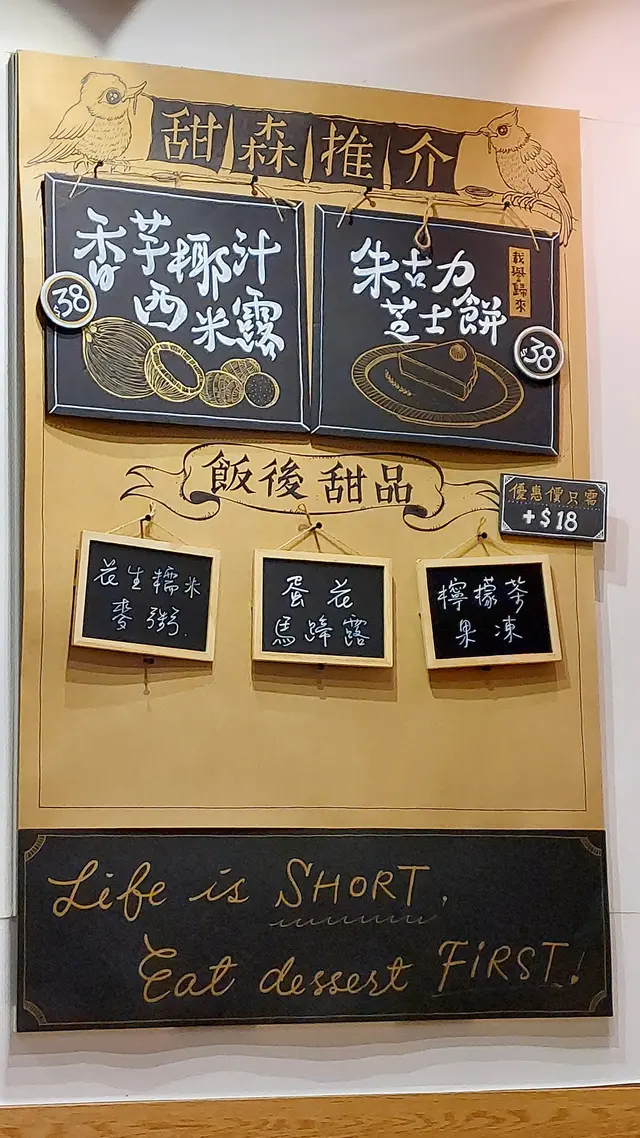 甜森推介
香芋椰汁
西米露
$38
朱古力
芝士餅
載譽歸來
$38
飯後甜品
優惠價只需
+$18
花生糯米
麥粥
蛋花
馬蹄露
檸檬茶
果凍
Life is SHORT,
Eat dessert FiRST!